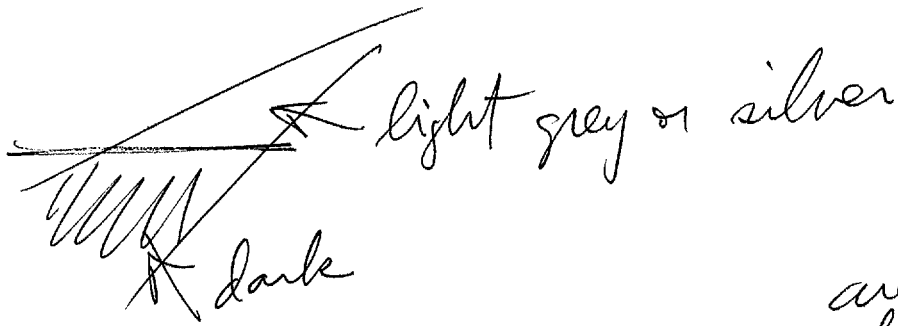 light grey or silver
dark